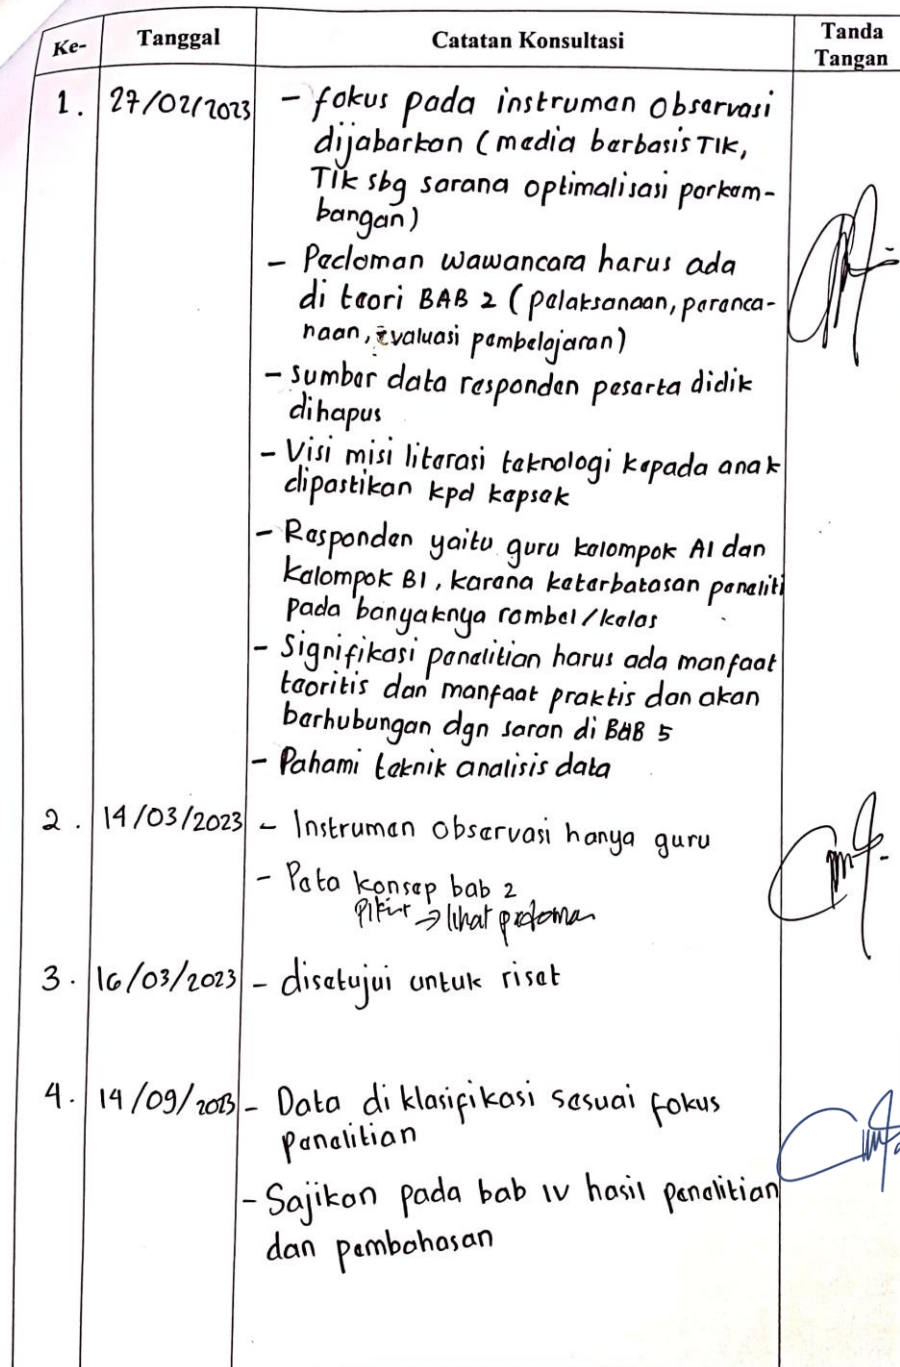 Ke- Tanggal Catatan Konsultasi Tanda Tangan
1. 27/02/2023 - fokus pada instrumen observasi
dijabarkan (media berbasis TIK,
TIK sbg sarana optimalisasi perkem-
bangan)
- Pedoman wawancara harus ada
di teori BAB 2 (pelaksanaan, perenca-
naan, evaluasi pembelajaran)
- sumber data responden peserta didik
dihapus
- Visi misi literasi teknologi kepada anak
dipastikan kpd kepsek
- Responden yaitu guru kelompok A1 dan
kelompok B1, karena keterbatasan peneliti
pada banyaknya rombel/kelas
- Signifikasi penelitian harus ada manfaat
teoritis dan manfaat praktis dan akan
berhubungan dgn saran di BAB 5
- Pahami teknik analisis data
2. 14/03/2023 - Instrumen observasi hanya guru
- Peta konsep bab 2
pikir → lihat pedoman
3. 16/03/2023 - disetujui untuk riset
4. 14/09/2023 - Data di klasifikasi sesuai fokus
penelitian
- Sajikan pada bab IV hasil penelitian
dan pembahasan